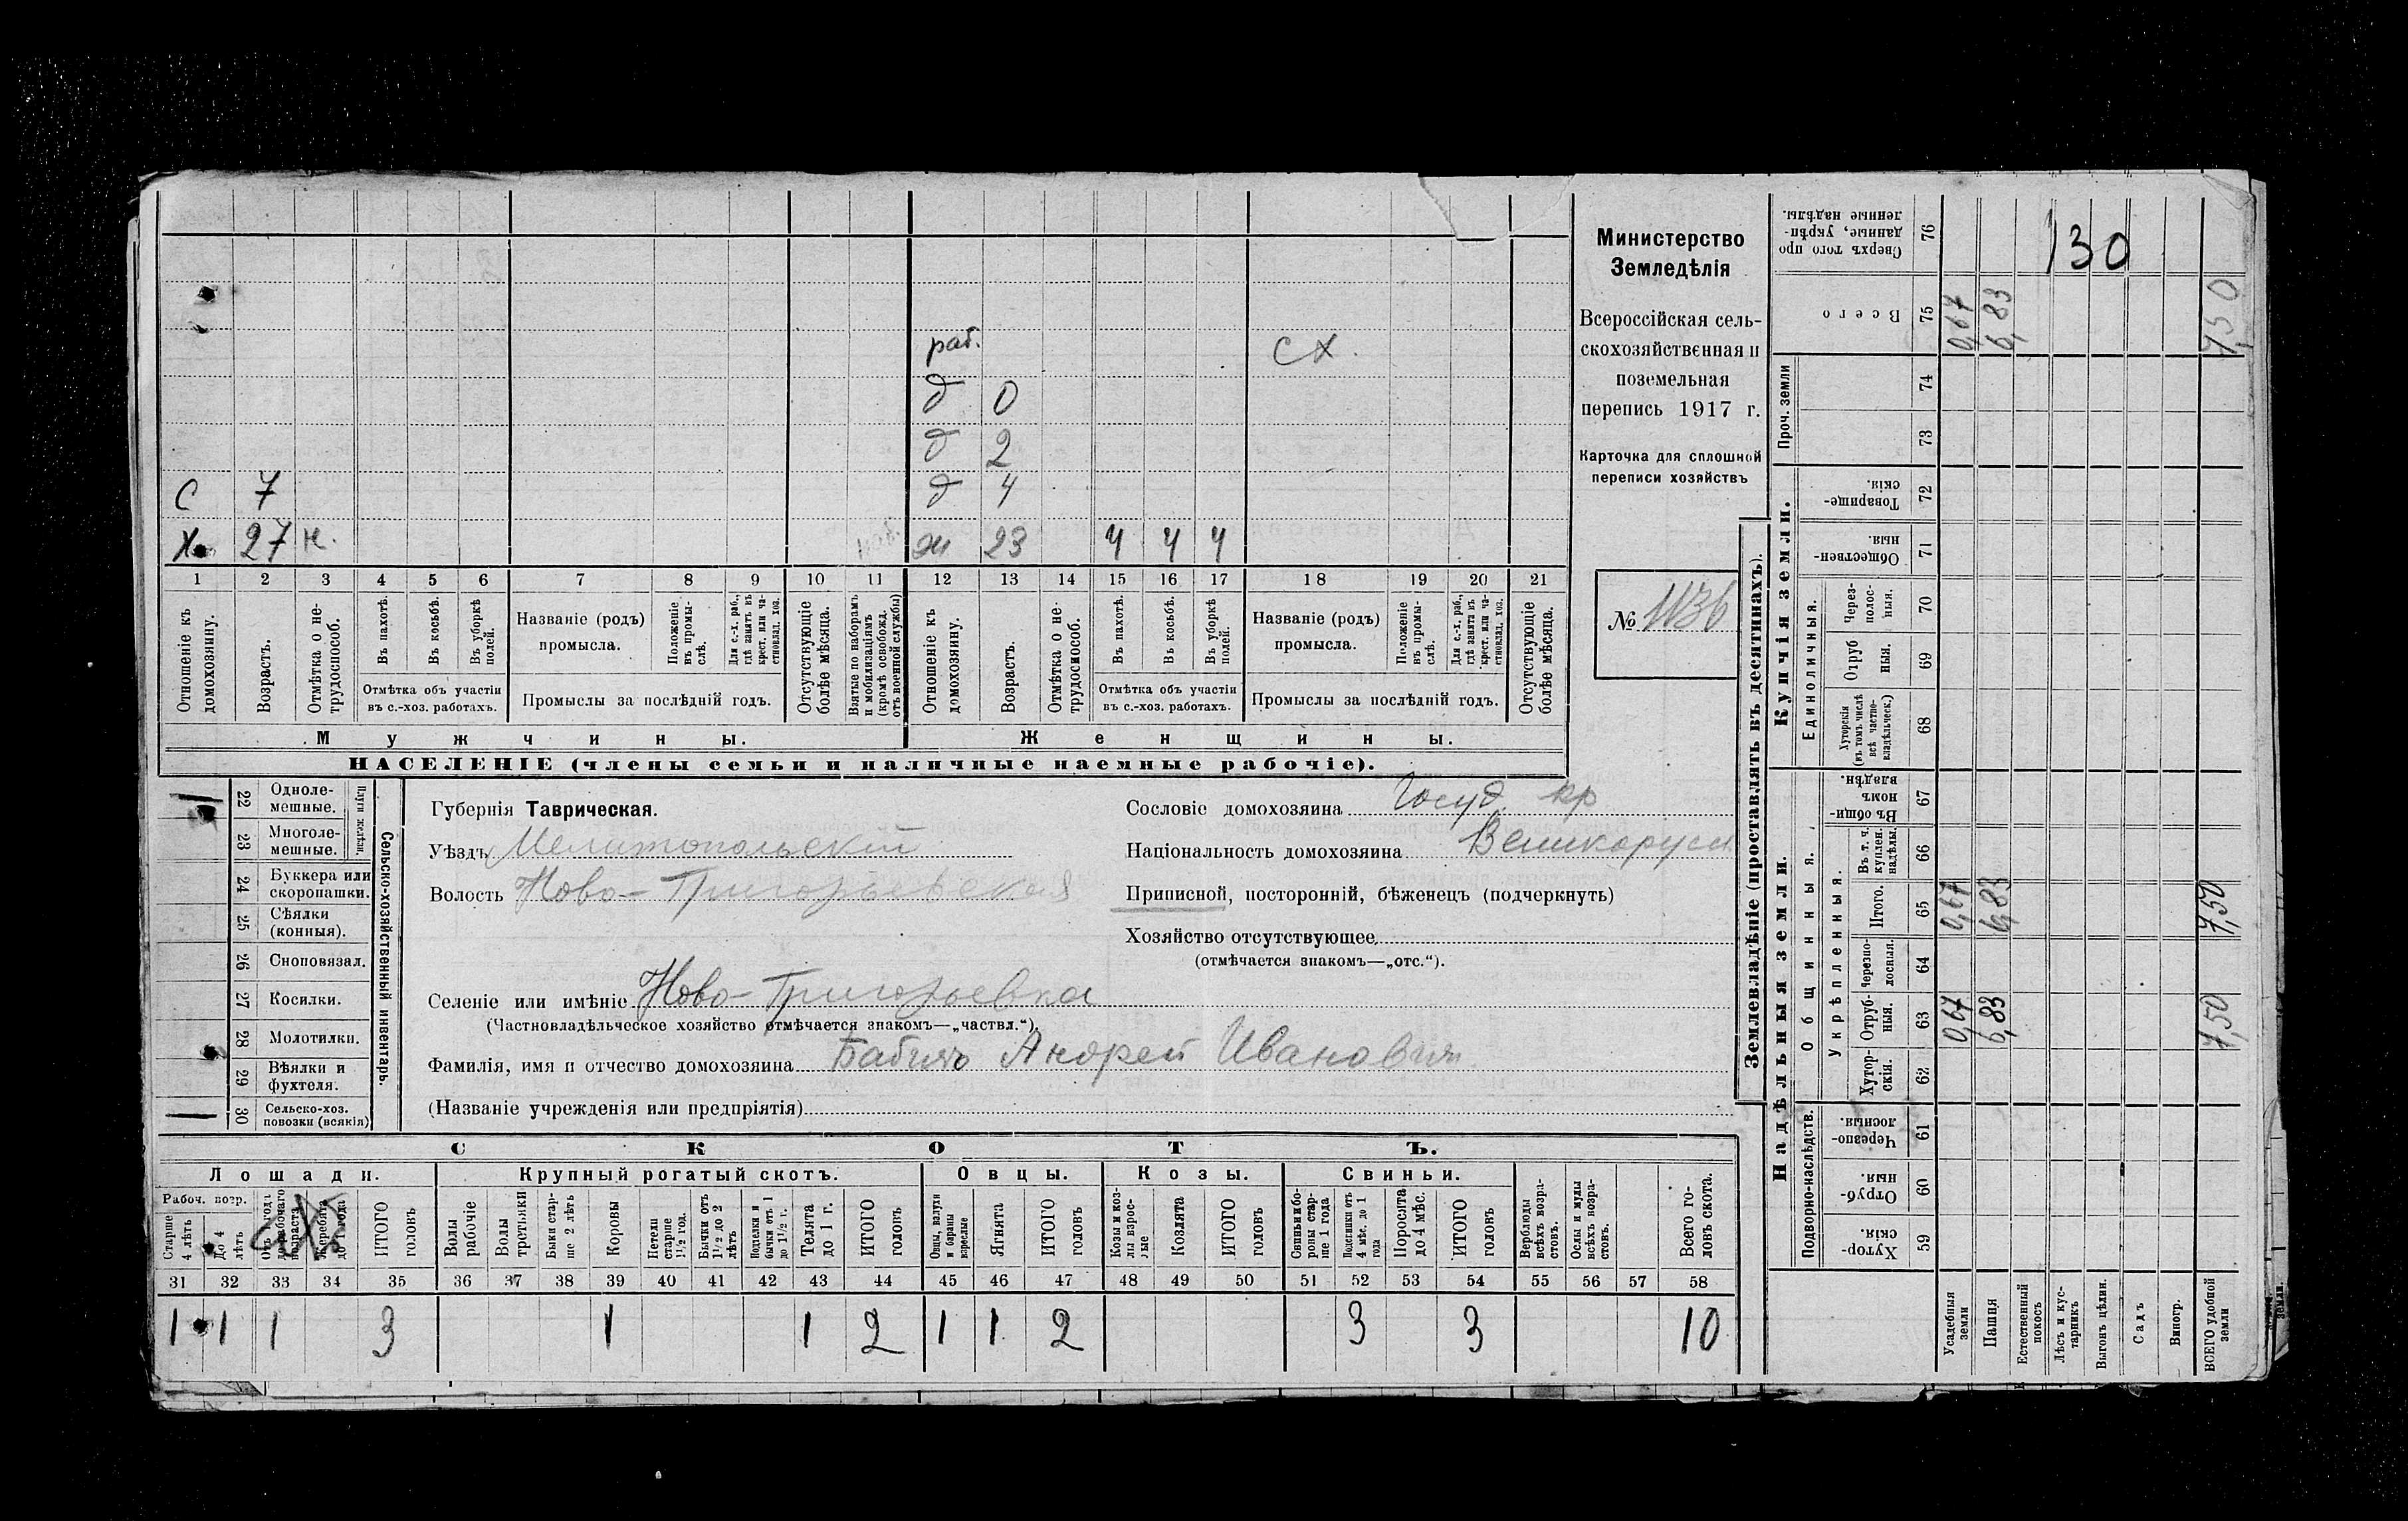 раб. СХ.
д 0
д 2
С 7 д 4
Х 27 н. ж 23 ч ч ч
1 2 3 4 5 6 7 8 9 10 11 12 13 14 15 16 17 18 19 20 21
Отношеніе къ домохозяину.
Возрастъ.
Отмѣтка о нетрудоспособ.
Въ пахотѣ.
Въ косьбѣ.
Въ уборкѣ полей.
Отмѣтка объ участіи въ с.-хоз. работахъ.
Названіе (родъ) промысла.
Положеніе въ промыслѣ.
Для с.-х. раб., гдѣ занятъ въ крест. или частновлад. хоз.
Промыслы за послѣдній годъ.
Отсутствующіе болѣе мѣсяца.
Взятые по наборамъ и мобилизаціямъ (кромѣ освобожд. отъ военной службы)
Отношеніе къ домохозяину.
Возрастъ.
Отмѣтка о нетрудоспособ.
Въ пахотѣ.
Въ косьбѣ.
Въ уборкѣ полей.
Отмѣтка объ участіи въ с.-хоз. работахъ.
Названіе (родъ) промысла.
Положеніе въ промыслѣ.
Для с.-х. раб., гдѣ занята въ крест. или частновлад. хоз.
Промыслы за послѣдній годъ.
Отсутствующіе болѣе мѣсяца.
Мужчины. Женщины.
НАСЕЛЕНІЕ (члены семьи и наличные наемные рабочіе).
Министерство
Земледѣлія
Всероссійская сель-
скохозяйственная и
поземельная
перепись 1917 г.
Карточка для сплошной
переписи хозяйствъ
№ 1136
22 Однолемешные.
23 Многолемешные.
Плуги желѣзн.
24 Буккера или скоропашки.
25 Сѣялки (конныя).
26 Сноповязал.
27 Косилки.
28 Молотилки.
29 Вѣялки и фухтеля.
30 Сельско-хоз. повозки (всякія)
Сельско-хозяйственный инвентарь.
Губернія Таврическая.
Уѣздъ Мелитопольскій
Волость Ново-Григорьевская
Селеніе или имѣніе Ново-Григорьевка
(Частновладѣльческое хозяйство отмѣчается знакомъ—„частвл.“).
Фамилія, имя и отчество домохозяина Бабичъ Андрей Иванович
(Названіе учрежденія или предпріятія)
Сословіе домохозяина Госуд. кр
Національность домохозяина Великорусы
Приписной, посторонній, бѣженецъ (подчеркнуть)
Хозяйство отсутствующее
(отмѣчается знакомъ—„отс.“).
СКОТЪ.
Лошади. Крупный рогатый скотъ. Овцы. Козы. Свиньи.
Рабоч. возр.
Старше 4 лѣтъ
До 4 лѣтъ
ИТОГО головъ
Волы рабочіе
Волы третьяки
Быки старше 2 лѣтъ
Коровы
Нетели старше 1½ год.
Бычки отъ 1½ до 2 лѣтъ
Подтелки и бычки отъ 1 до 1½ г.
Телята до 1 г.
ИТОГО головъ
Овцы, валухи и бараны взрослые
Ягнята
ИТОГО головъ
Козы и козлы взрослые
Козлята
ИТОГО головъ
Свиньи и боровы старше 1 года
Подсвинки отъ 4 мѣс. до 1 года
Поросята до 4 мѣс.
ИТОГО головъ
Верблюды всѣхъ возрастовъ.
Ослы и мулы всѣхъ возрастовъ.
Всего головъ скота.
31 32 33 34 35 36 37 38 39 40 41 42 43 44 45 46 47 48 49 50 51 52 53 54 55 56 57 58
1 1 1 3 1 1 2 1 1 2 3 3 10
Землевладѣніе (проставлять въ десятинахъ).
Надѣльныя земли. Купчія земли.
Проч. земли
Сверхъ того проданные, укрѣпленные надѣлы. 76 130
Всего 75 0,67 6,83 7,50
74
73
Товарищескія. 72
Общественныя. 71
Единоличныя.
Черезполосныя. 70
Отрубныя. 69
Хуторскія (въ томъ числѣ всѣ частновладѣльческ.) 68
Общинныя.
Въ общинномъ владѣн. 67
Укрѣпленныя.
Въ т. ч. куплен. надѣлы. 66
Итого. 65 0,67 6,83 7,50
Черезполосныя. 64
Отрубныя. 63 0,67 6,83 7,50
Хуторскія. 62
Подворно-наслѣдств.
Черезполосныя. 61
Отрубныя. 60
Хуторскія. 59
Усадебныя земли
Пашня
Естественный покосъ
Лѣсъ и кустарникъ
Выгонъ цѣлин.
Садъ
Виногр.
ВСЕГО удобной земли